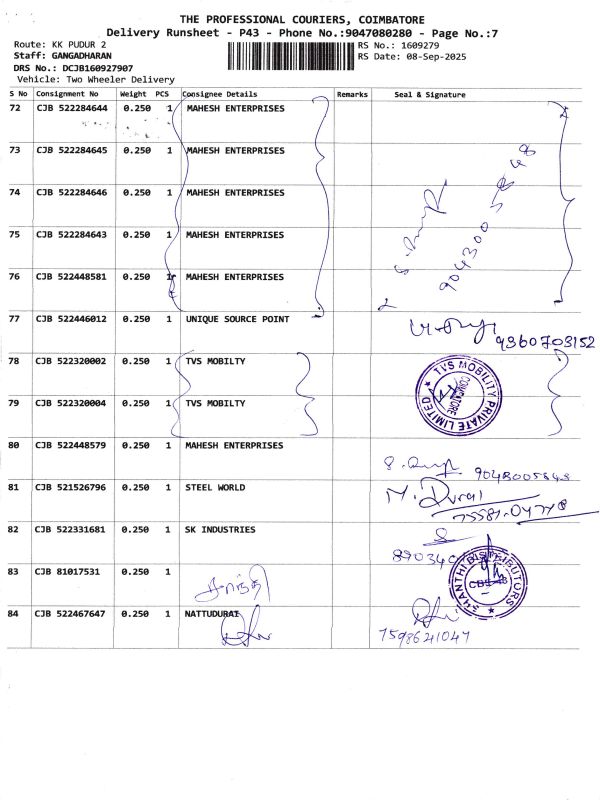 THE PROFESSIONAL COURIERS, COIMBATORE
Delivery Runsheet - P43 - Phone No.:9047080280 - Page No.:7
Route: KK PUDUR 2
RS No.: 1609279
Staff: GANGADHARAN
RS Date: 08-Sep-2025
DRS No.: DCJB160927907
Vehicle: Two Wheeler Delivery
S No Consignment No Weight PCS Consignee Details Remarks Seal & Signature
72 CJB 522284644 0.250 1 MAHESH ENTERPRISES
73 CJB 522284645 0.250 1 MAHESH ENTERPRISES
74 CJB 522284646 0.250 1 MAHESH ENTERPRISES
75 CJB 522284643 0.250 1 MAHESH ENTERPRISES
76 CJB 522448581 0.250 1 MAHESH ENTERPRISES
77 CJB 522446012 0.250 1 UNIQUE SOURCE POINT
9360703152
78 CJB 522320002 0.250 1 TVS MOBILTY
TVS MOBILITY PRIVATE LIMITED
COIMBATORE
79 CJB 522320004 0.250 1 TVS MOBILTY
80 CJB 522448579 0.250 1 MAHESH ENTERPRISES
81 CJB 521526796 0.250 1 STEEL WORLD
M. Durai
82 CJB 522331681 0.250 1 SK INDUSTRIES
SHANTHI DISTRIBUTORS
83 CJB 81017531 0.250 1
சாந்தி
84 CJB 522467647 0.250 1 NATTUDURAI
7598641047